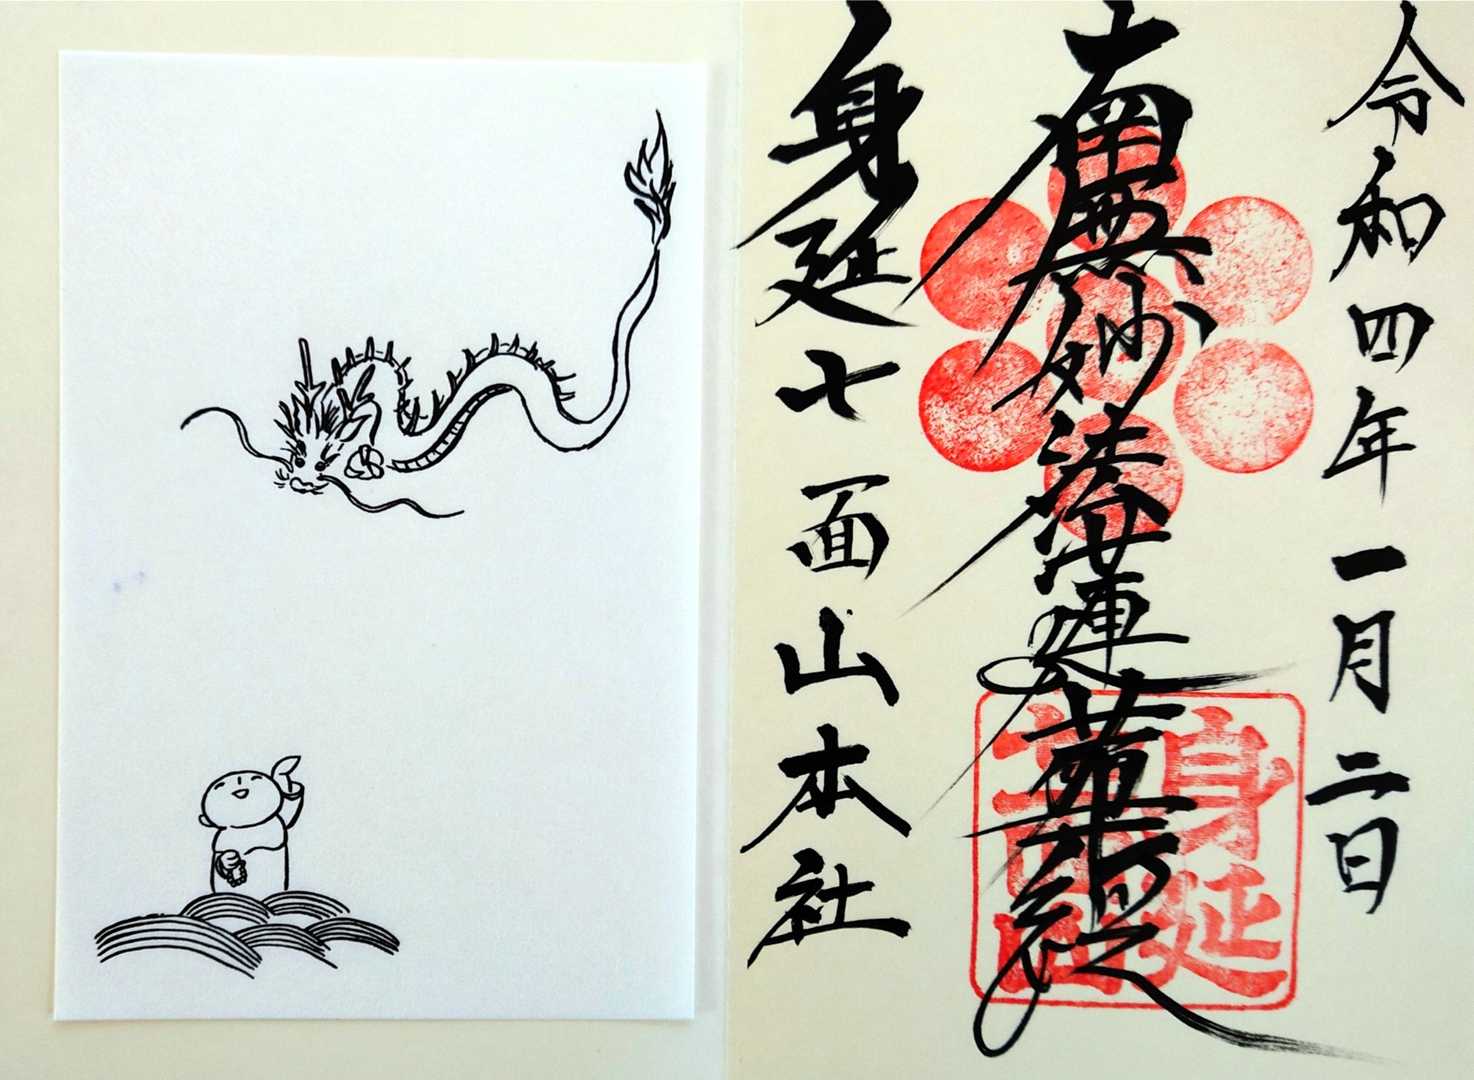 令和四年一月二日
南無妙法蓮華経
身延七面山本社
身延